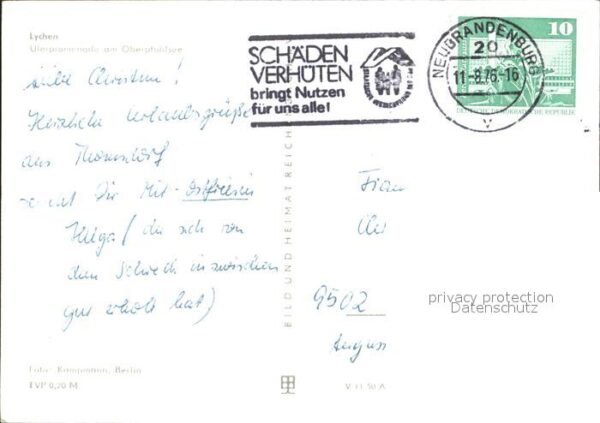 Lychen
Uferpromenade am Oberpfuhlsee
Liebe Christun!
Herzliche Urlaubsgrüße
aus Thomsdorf
Dir Mit-Ostfriesin
Helga (die sich von
dem Schreck inzwischen
gut erholt hat)
Foto: Kampmann, Berlin
EVP 0,20 M
BILD UND HEIMAT REICHENBACH
V 11 50 A
SCHÄDEN
VERHÜTEN
bringt Nutzen
für uns alle!
NEUBRANDENBURG
20
11.-8.76.-16
V
10
DEUTSCHE DEMOKRATISCHE REPUBLIK
Frau
9502
privacy protection
Datenschutz